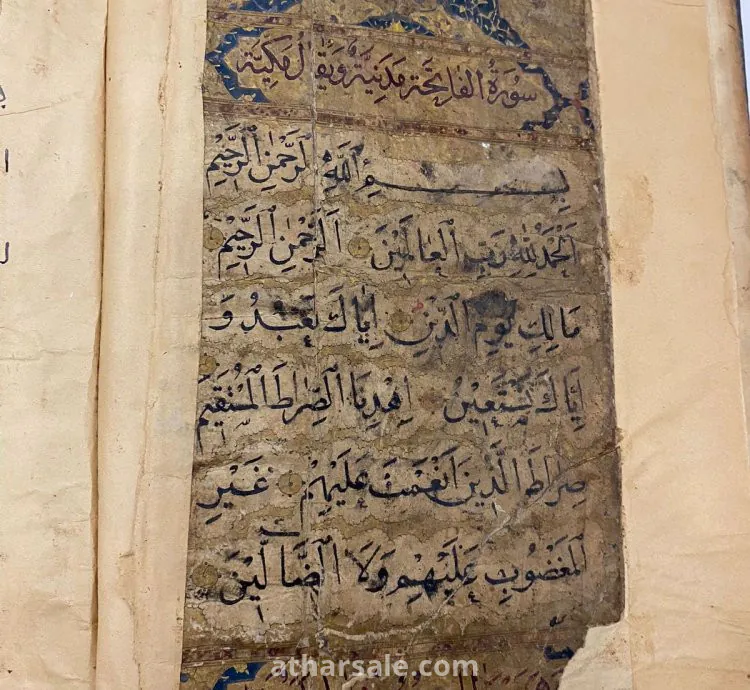 سُورَةُ الفَاتِحَةِ مَدَنِيَّةٌ وَيُقَالُ مَكِّيَّة
بِسْمِ اللَّهِ الرَّحْمٰنِ الرَّحِيْمِ
اَلْحَمْدُ لِلَّهِ رَبِّ الْعَالَمِيْنَ اَلرَّحْمٰنِ الرَّحِيْمِ
مَالِكِ يَوْمِ الدِّيْنِ اِيَّاكَ نَعْبُدُ وَ
اِيَّاكَ نَسْتَعِيْنُ اِهْدِنَا الصِّرَاطَ الْمُسْتَقِيْمَ
صِرَاطَ الَّذِيْنَ اَنْعَمْتَ عَلَيْهِمْ غَيْرِ
الْمَغْضُوْبِ عَلَيْهِمْ وَلَا الضَّالِّيْنَ
atharsale.com